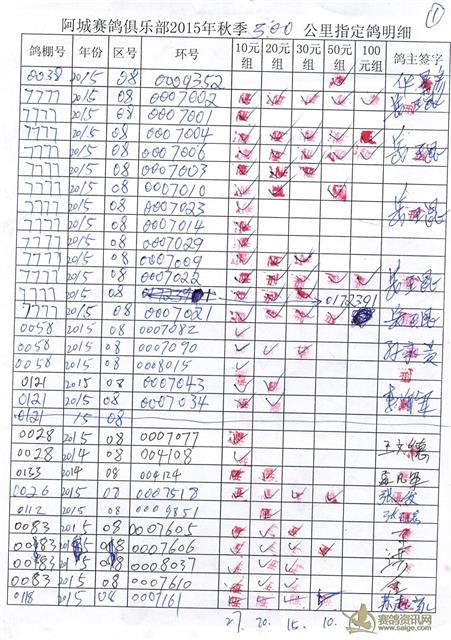 ①
阿城赛鸽俱乐部2015年秋季 300 公里指定鸽明细
鸽棚号 年份 区号 环号 10元组 20元组 30元组 50元组 100元组 鸽主签字
0038 2015 08 0009352
7777 2015 08 0007002
7777 2015 08 0007001
7777 2015 08 0007004
7777 2015 08 0007006
7777 2015 08 0007003
7777 2015 08 0007010
7777 2015 08 0007023
7777 2015 08 0007014
7777 2015 08 0007029
7777 2015 08 0007009
7777 2015 08 0007022
7777 2015 08 0172391
7777 2015 08 0007021
0058 2015 08 0007082
0058 2015 08 0007090
0058 2015 08 0008015
0121 2015 08 0007043
0121 2015 08 0007034
0121 15 08
0028 2015 08 0007077 王文德
0028 2014 08 004108
0133 2014 08 004124
0026 2015 08 0007518
0112 2015 08 0009851
0083 2015 08 0007605
0083 2015 08 0007606
0083 2015 08 0008037
0083 2015 08 0007610
0118 2015 08 0007161
27. 20. 15. 10.
赛鸽资讯网
www.saige.com